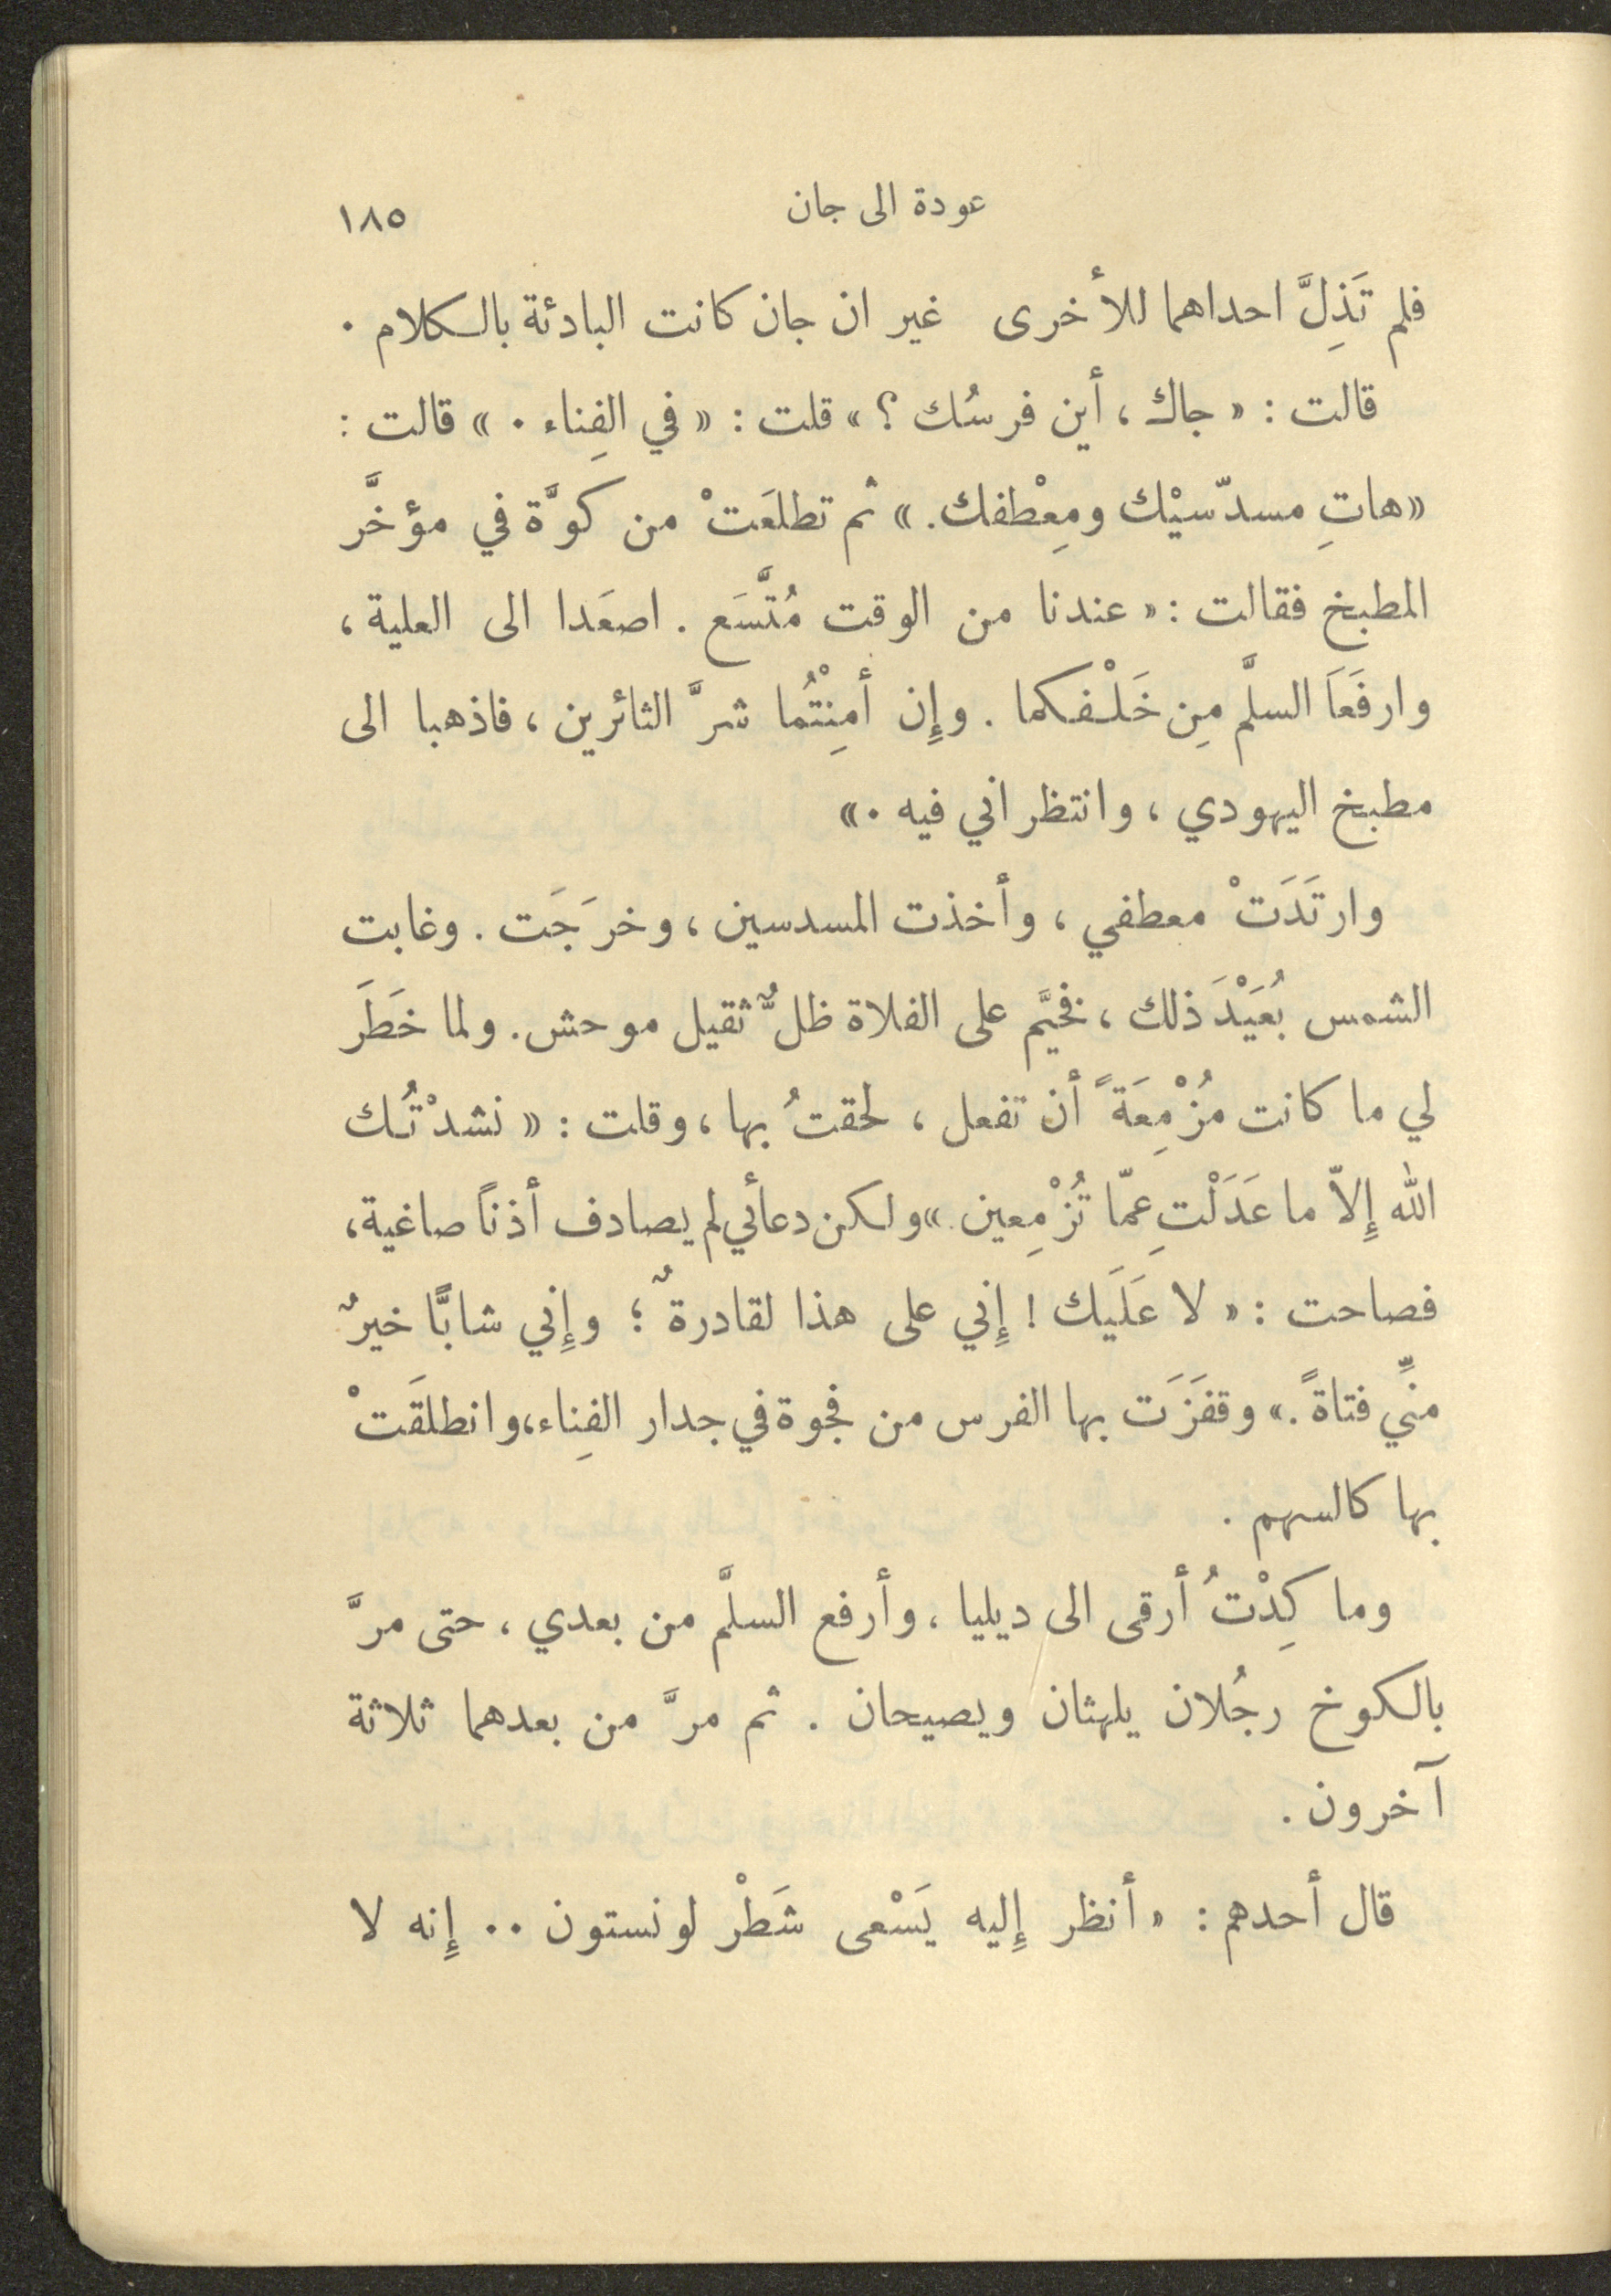 عودة الى جان
١٨٥
فلم تَذِلَّ احداهما للأخرى غير ان جان كانت البادئة بالكلام .
قالت : « جاك ، أين فرسُك ؟ » قلت : « في الفِناء . » قالت :
« هاتِ مسدّسيْك ومِعْطفك . » ثم تطلعَتْ من كوَّة في مؤخَّر
المطبخ فقالت : « عندنا من الوقت مُتَّسَع . اصعَدا الى العلية ،
وارفَعَا السلَّم مِن خَلْفكما . وإِن أمِنْتُما شرَّ الثائرين ، فاذهبا الى
مطبخ اليهودي ، وانتظراني فيه . »
وارتَدَتْ معطفي ، وأخذت المسدسين ، وخرَجَت . وغابت
الشمس بُعَيْدَ ذلك ، فخيَّم على الفلاة ظلٌّ ثقيل موحش . ولما خَطَرَ
لي ما كانت مُزْمِعَةً أن تفعل ، لحقتُ بها ، وقلت : « نشدْتُك
الله إِلاّ ما عَدَلْتِ عمّا تُزْمِعين . » ولكن دعائي لم يصادف أذناً صاغية ،
فصاحت : « لا عَلَيك ! إِني على هذا لقادرةٌ ؛ وإِني شابًّا خيرٌ
منِّي فتاةً . » وقفَزَت بها الفرس من فجوة في جدار الفِناء ، وانطلقَتْ
بها كالسهم .
وما كِدْتُ أرقى الى ديليا ، وأرفع السلَّم من بعدي ، حتى مرَّ
بالكوخ رجُلان يلهثان ويصيحان . ثم مرَّ من بعدهما ثلاثة
آخرون .
قال أحدهم : « أنظر إِليه يَسْعى شَطْر لونستون .. إِنه لا